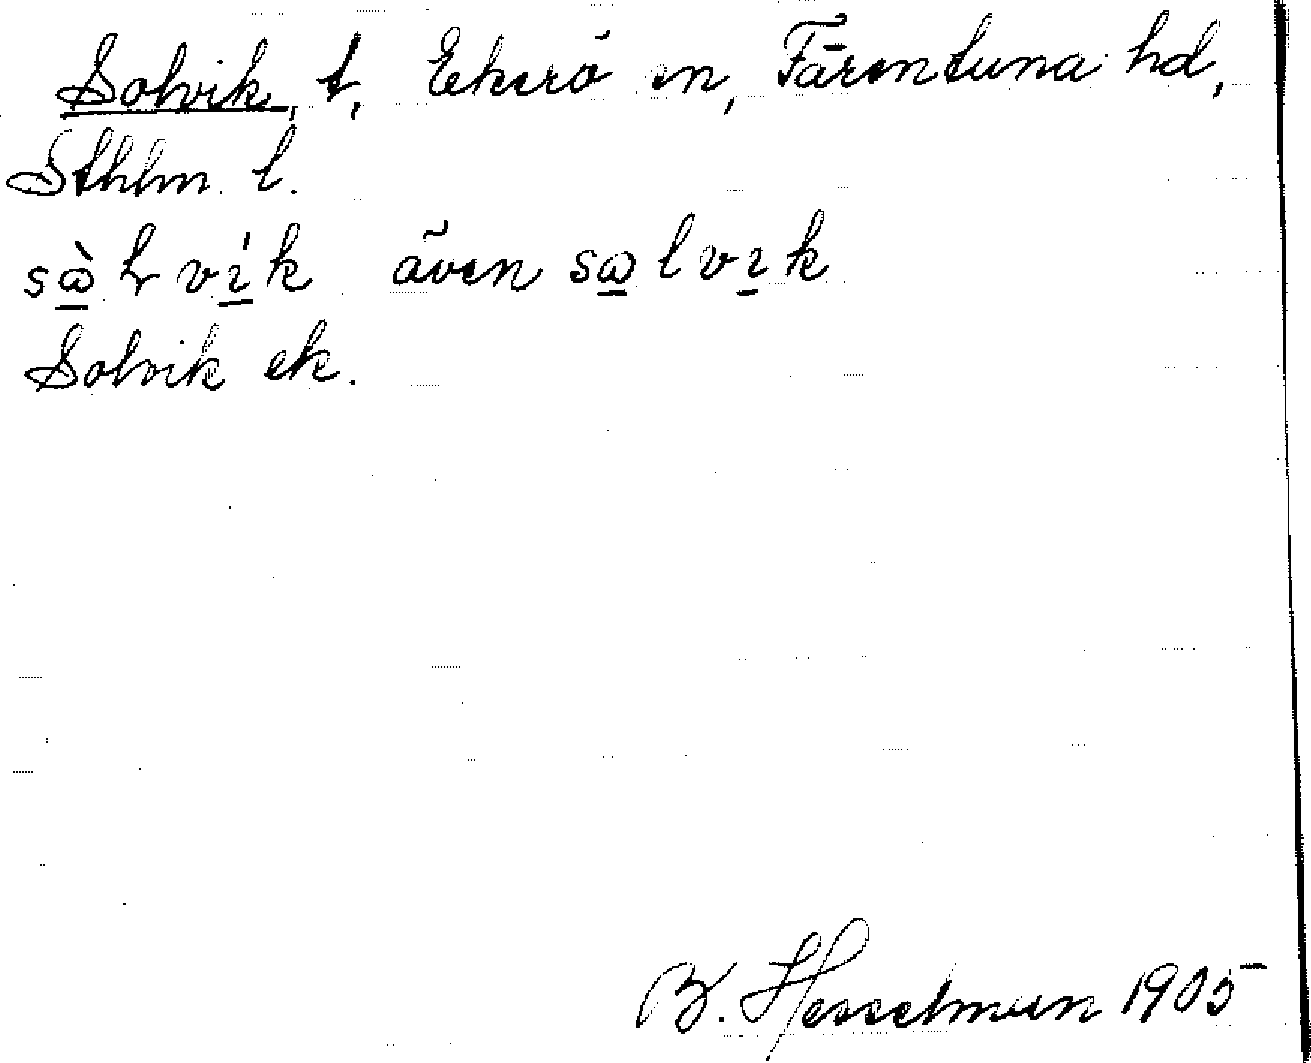 Solvik, t, Ekerö sn, Färentuna hd,
Sthlm l.
även
Solvik ek.
B. Hesselman 1905